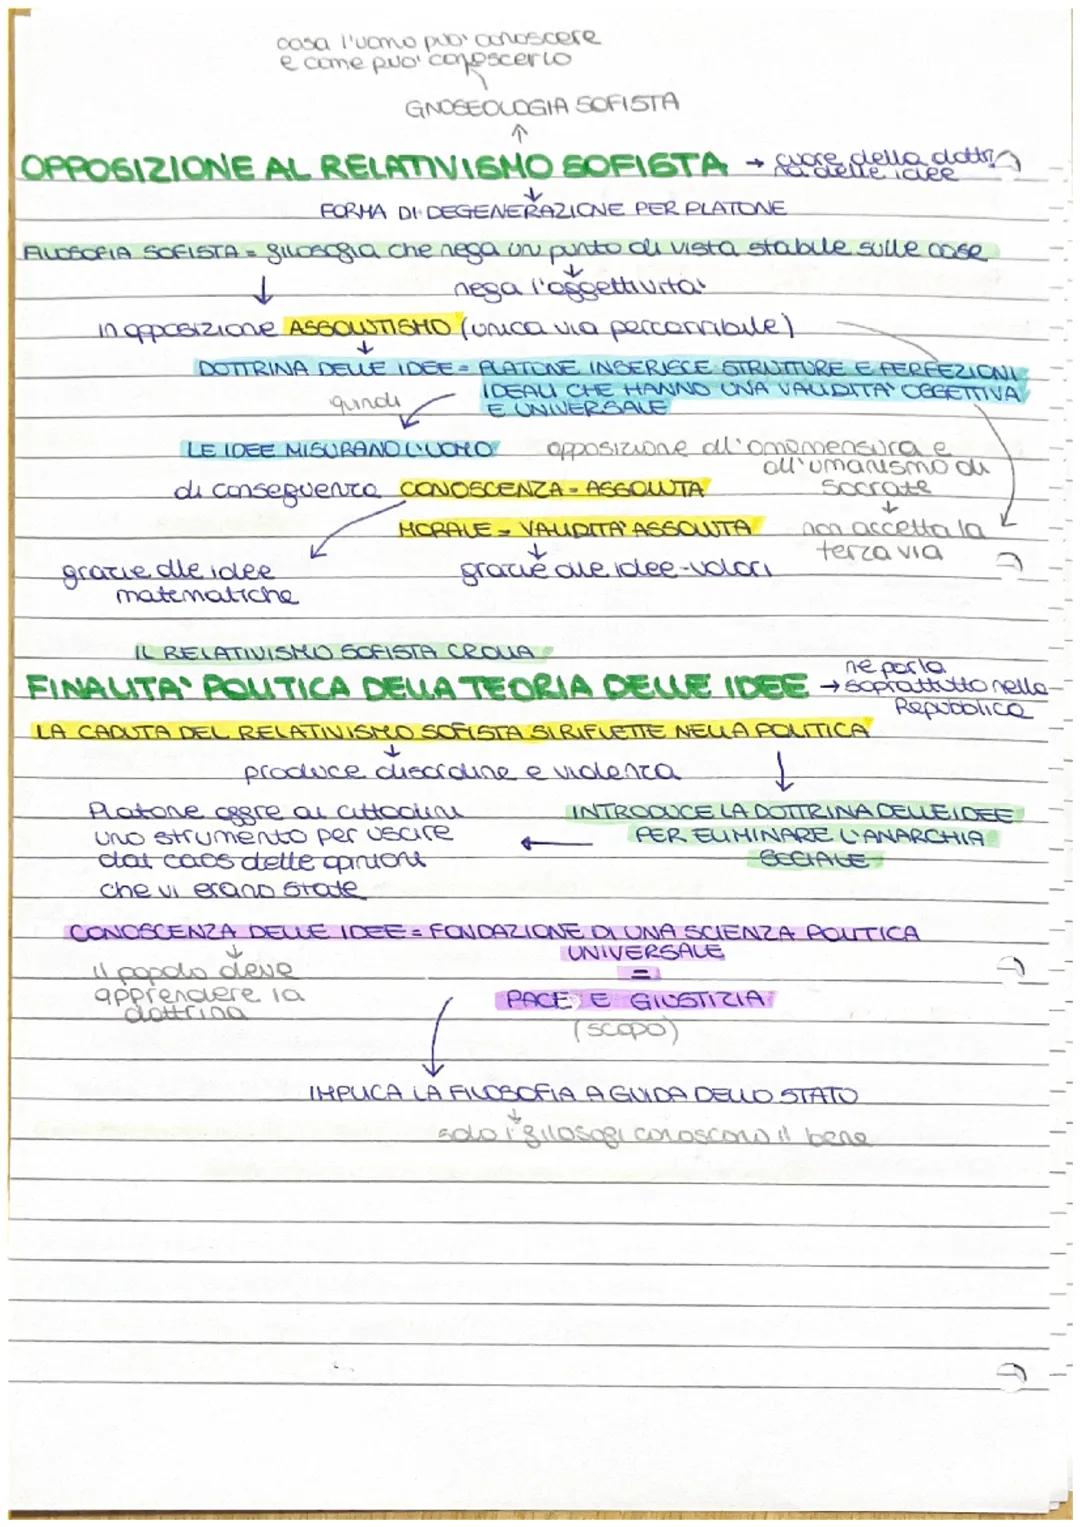 cosa l'uomo può conoscere
e come può conoscerlo
GNOSEOLOGIA SOFISTA
OPPOSIZIONE AL RELATIVISMO SOFISTA → cuore della dottri
na delle idee
FORMA DI DEGENERAZIONE PER PLATONE
FILOSOFIA SOFISTA = filosofia che nega un punto di vista stabile sulle cose
nega l'oggettività
in opposizione ASSOLUTISMO (unica via percorribile)
DOTTRINA DELLE IDEE = PLATONE INSERISCE STRUTTURE E PERFEZIONI
IDEALI CHE HANNO UNA VALIDITA' OGGETTIVA
E UNIVERSALE
quindi
LE IDEE MISURANO L'UOMO
opposizione all'omomensura e
all'umanismo di
Socrate
di conseguenza CONOSCENZA = ASSOLUTA
MORALE = VALIDITA' ASSOLUTA
non accetta la
terza via
grazie alle idee
matematiche
grazie alle idee-valori
IL RELATIVISMO SOFISTA CROLLA
FINALITA' POLITICA DELLA TEORIA DELLE IDEE → ne parla
soprattutto nella
Repubblica
LA CADUTA DEL RELATIVISMO SOFISTA SI RIFLETTE NELLA POLITICA
produce disordine e violenza
Platone offre ai cittadini
uno strumento per uscire
dal caos delle opinioni
che vi erano state
INTRODUCE LA DOTTRINA DELLE IDEE
PER ELIMINARE L'ANARCHIA
SOCIALE
CONOSCENZA DELLE IDEE = FONDAZIONE DI UNA SCIENZA POLITICA
UNIVERSALE
=
il popolo deve
apprendere la
dottrina
PACE E GIUSTIZIA
(scopo)
IMPLICA LA FILOSOFIA A GUIDA DELLO STATO
solo i filosofi conoscono il bene